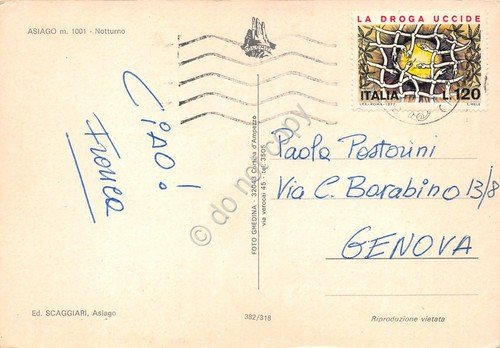 ASIAGO m. 1001 - Notturno
CIAO!
Franca
Ed. SCAGGIARI, Asiago
FOTO GHEDINA - 32043 Cortina d'Ampezzo
via verocai 45 - tel. 3505
382/318
LA DROGA UCCIDE
ITALIA L. 120
I.P.S.-ROMA-1977
Paola Pastorini
Via C. Barabino 13/8
GENOVA
Riproduzione vietata
do not copy